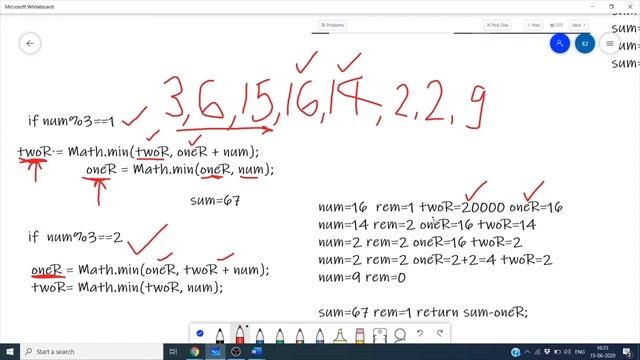 Microsoft Whiteboard
Problems
Pick One
Next
sum=
sum=
sum=
KJ
3, 6, 15, 16, 14, 2, 2, 9
if num%3==1
twoR = Math.min(twoR, oneR + num);
oneR = Math.min(oneR, num);
sum=67
if num%3==2
oneR = Math.min(oneR, twoR + num);
twoR= Math.min(twoR, num);
num=16 rem=1 twoR=20000 oneR=16
num=14 rem=2 oneR=16 twoR=14
num=2 rem=2 oneR=16 twoR=2
num=2 rem=2 oneR=2+2=4 twoR=2
num=9 rem=0
sum=67 rem=1 return sum-oneR;
Start a search
ENG
16:23
15-06-2020